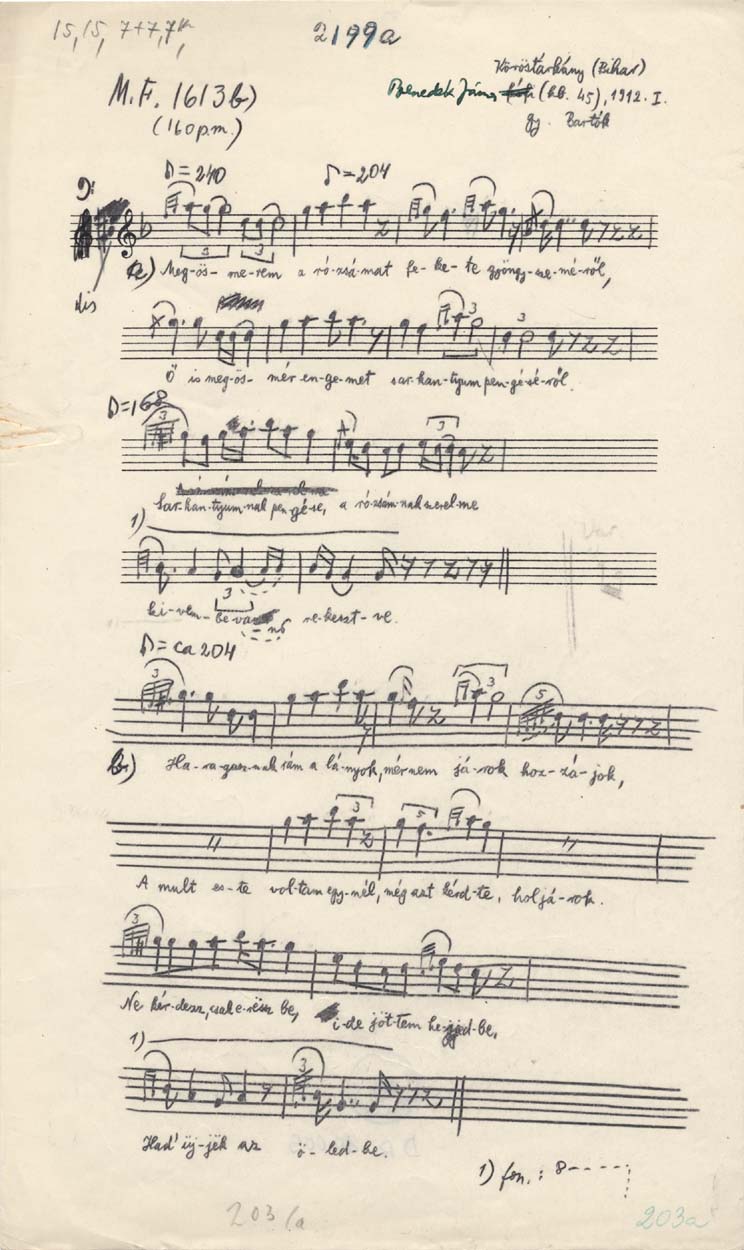 15, 15, 7+7, 7
2199a
Köröstárkány (Bihar)
M.F. 1613b)
Benedek János (kb. 45), 1912. I.
(160 p.m.)
gy. Bartók
♪ = 240 ♪ = 204
dis
a) Meg-ös-me-rem a ró-zsá-mat fe-ke-te gyöngy-sze-mé-ről,
3 3
Ő is meg-ös-mér en-ge-met sar-kan-tyum pen-gé-sé-ről.
3 3
♪ = 168
3 3
Sar-kan-tyum-nak pen-gé-se, a ró-zsám-nak szerel-me
1)
3
ki-vem-be van
nő re-keszt-ve.
Var
♪ = ca 204
3 3 5
b) Ha-ra-gusz-nak rám a lá-nyok, mér nem já-rok hoz-zá-jok,
3 5
A mult es-te vol-tam egy-nél, még azt kérd-te, hol já-rok.
3
Ne kér-desz, csak e-ressz be, i-de jöt-tem he-jed-be,
1)
3
Had' üj-jek az ö-led-be.
1) fon.: 8-----
203/a 203a